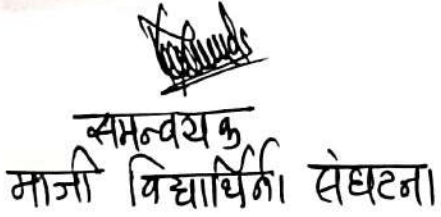 समन्वयक
माजी विद्यार्थिनी संघटना